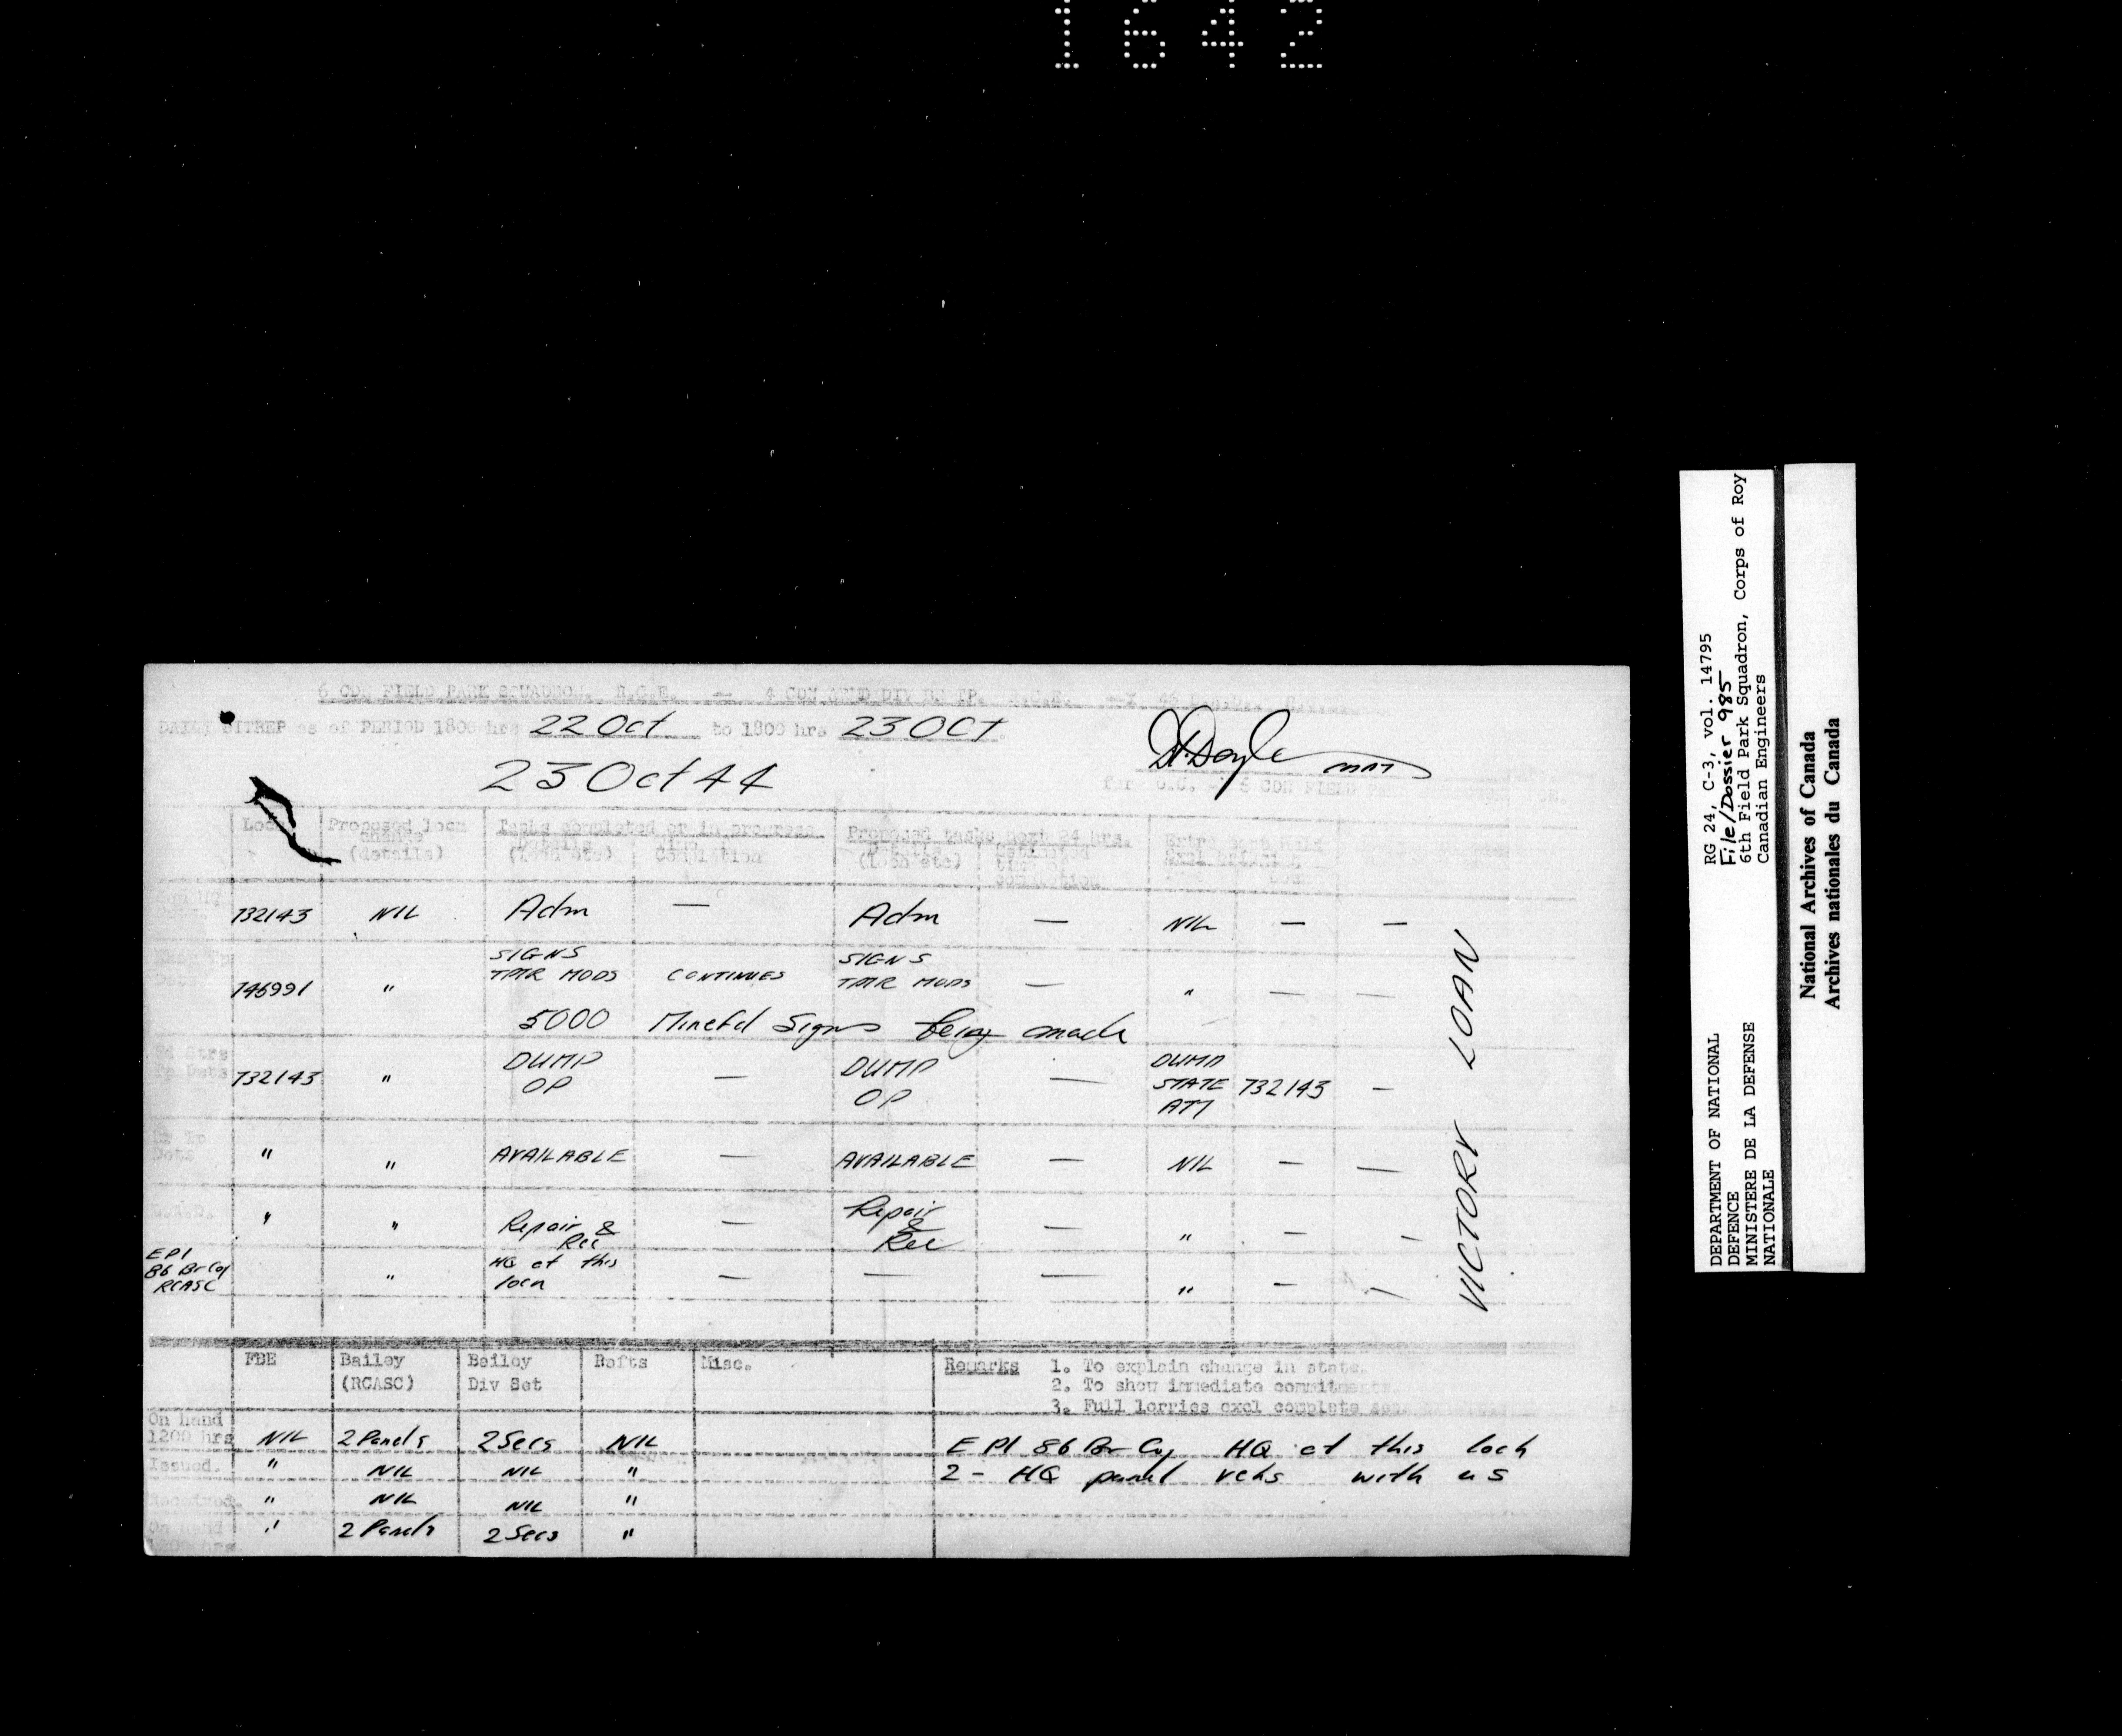 1642
6 CDN FIELD PARK SQUADRON. R.C.E. — 4 CDN ARMD DIV
DAILY SITREP as of PERIOD 1800 hrs 22 Oct to 1800 hrs 23 OCT.
23 Oct 44
for O.C. 6 CDN FIELD
Locn Proposed locn Tasks completed or in progress. Proposed tasks next 24 hrs.
(details) (locn etc) (locn etc) Estimated
732143 NIL Adm — Adm — NIL — —
SIGNS SIGNS
746991 " TPTR MODS CONTINUES TPTR MODS — " — —
5000 Minefd Signs being made
732143 " DUMP — DUMP — DUMP
OP OP STATE 732143 —
ATT
" " AVAILABLE — AVAILABLE — NIL — —
" " Repair & — Repair — " — —
Rec & Rec
E Pl
86 Br Coy
RCASC
" HQ at this — — — " — —
locn
VICTORY LOAN
FBE Bailey Bailey Rafts Misc. Remarks 1. To explain change in state.
(RCASC) Div Set 2. To show immediate commitments.
3. Full lorries excl complete
On hand
1200 hrs NIL 2 Panels 2 Secs NIL E Pl 86 Br Coy HQ at this loch
Issued. " NIL NIL " 2 - HQ panel vehs with us
Received. " NIL NIL "
On hand
1200 hrs " 2 Panels 2 Secs "
DEPARTMENT OF NATIONAL
DEFENCE
MINISTERE DE LA DEFENSE
NATIONALE
RG 24, C-3, vol. 14795
File/Dossier 985
6th Field Park Squadron, Corps of Roy
Canadian Engineers
National Archives of Canada
Archives nationales du Canada